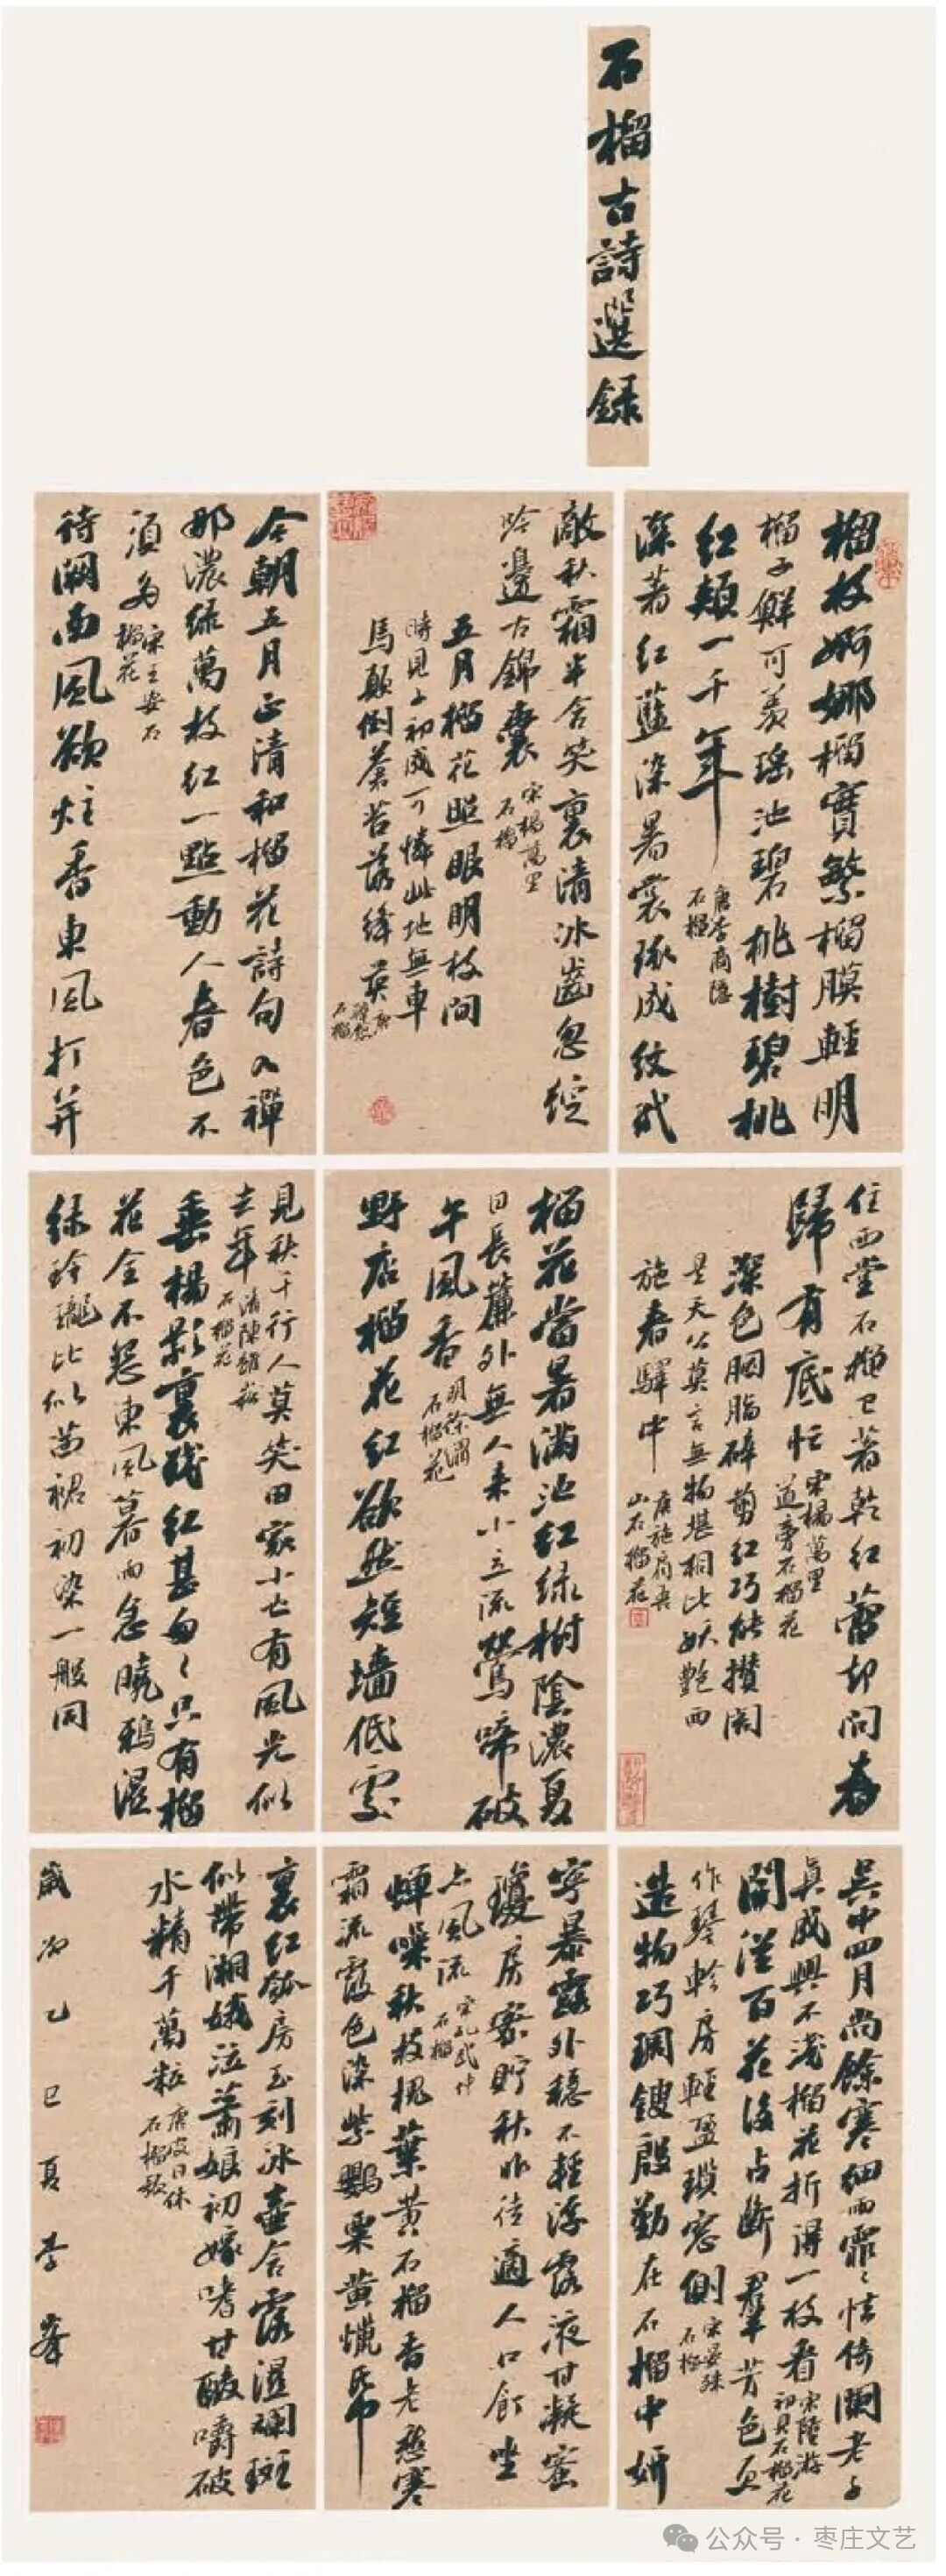 石榴古詩選録
榴枝婀娜榴實繁榴膜輕明
榴子鮮可羨瑤池碧桃樹碧桃
紅頰一千年
唐李商隱
石榴
深著紅藍染暑裳琢成紋玳
敵秋霜半含笑裏清冰齒忽綻
吟邊古錦囊
宋楊萬里
石榴
五月榴花照眼明枝間
時見子初成可憐此地無車
馬顛倒蒼苔落絳英
石榴
今朝五月正清和榴花詩句入禪
那濃绿萬枝紅一點動人春色不
須多
宋王安石
榴花
待闕南風欲炷香東風打并
住西堂石榴已著乾紅蕾却問春
歸有底忙
宋楊萬里
道旁石榴花
深色胭脂碎剪紅巧能攢
是天公莫言無物堪相比妖艷西
施春驛中
唐施肩吾
山石榴花
榴花當暑滿池紅绿樹陰濃夏
日長簾外無人来小立流鶯啼破
午風香
石榴花
野店榴花紅欲然短墙低處
見秋千行人莫笑田家小亡有風光似
去年
石榴花
垂楊影裏殘紅甚匆〻只有榴
花全不怨東風暮雨急曉鴉濕
绿玲瓏比似茜裙初染一般同
吴中四月尚餘寒细雨霏〻怯倚闌老子
真成興不淺榴花折得一枝看
宋陸游
初見石榴花
開從百花後占斷羣芳色
作琴軫房輕盈瑣窓側
宋晏殊
石榴
造物巧琱鎪殷勤在石榴中妍
寧暴露外穩不輕浮露液甘凝蜜
瓊房密貯秋非徒適人口飣坐
上風流
宋孔武仲
石榴
蟬噪秋枝槐葉黄石榴香老愁寒
霜流霞色染紫鸚粟黄蠟紙
裏紅瓠房玉刻冰壺含露濕斓斑
似帶湘娥泣蕭娘初嫁嗜甘酸嚼破
水精千萬粒
唐皮日休
石榴歌
歲次乙巳夏李峯
公众号 · 枣庄文艺